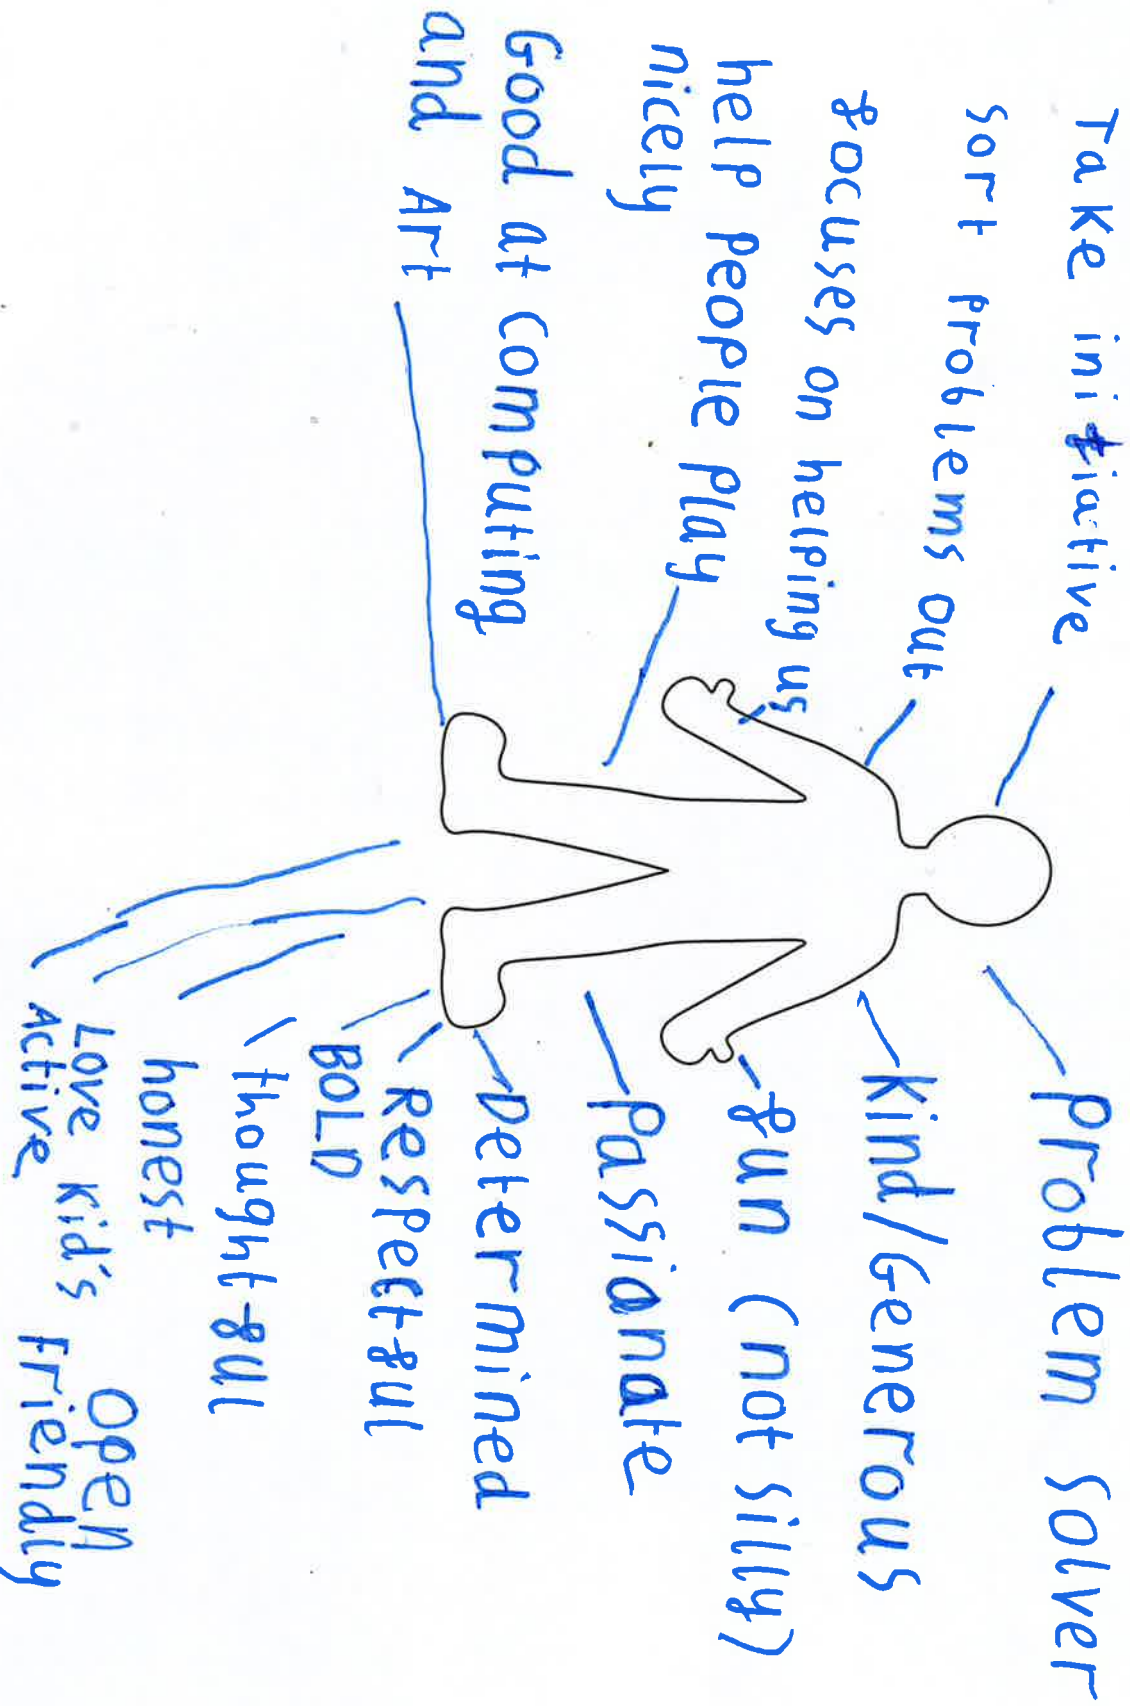 Take initiative
Sort problems out
focuses on helping us
help people play
nicely
Good at computing
and Art
Problem Solver
Kind/Generous
fun (not silly)
Passianate
Determined
Respectful
BOLD
thoughtful
honest
Love kid's
Active
Open
Friendly